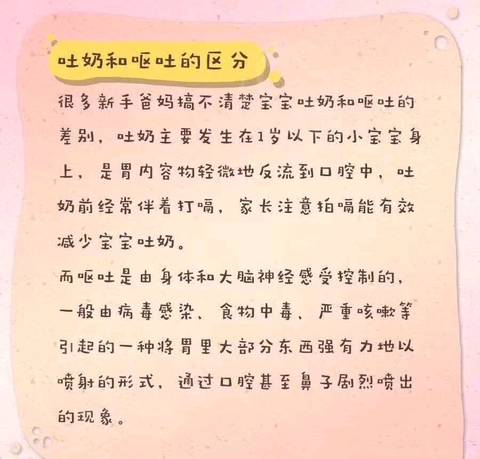 吐奶和呕吐的区分
很多新手爸妈搞不清楚宝宝吐奶和呕吐的
差别，吐奶主要发生在1岁以下的小宝宝身
上，是胃内容物轻微地反流到口腔中，吐
奶前经常伴着打嗝，家长注意拍嗝能有效
减少宝宝吐奶。
而呕吐是由身体和大脑神经感受控制的，
一般由病毒感染、食物中毒、严重咳嗽等
引起的一种将胃里大部分东西强有力地以
喷射的形式，通过口腔甚至鼻子剧烈喷出
的现象。